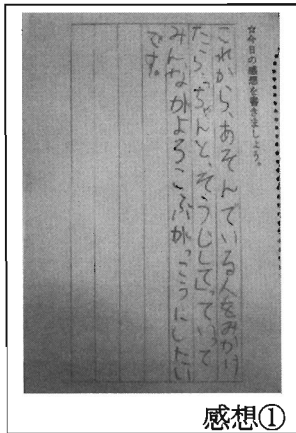 ☆今日の感想を書きましょう。
これから、あそんでいる人をみかけ
たら、「ちゃんと、そうじして」っていって
みんながよろこぶがっこうにしたい
です。
感想①